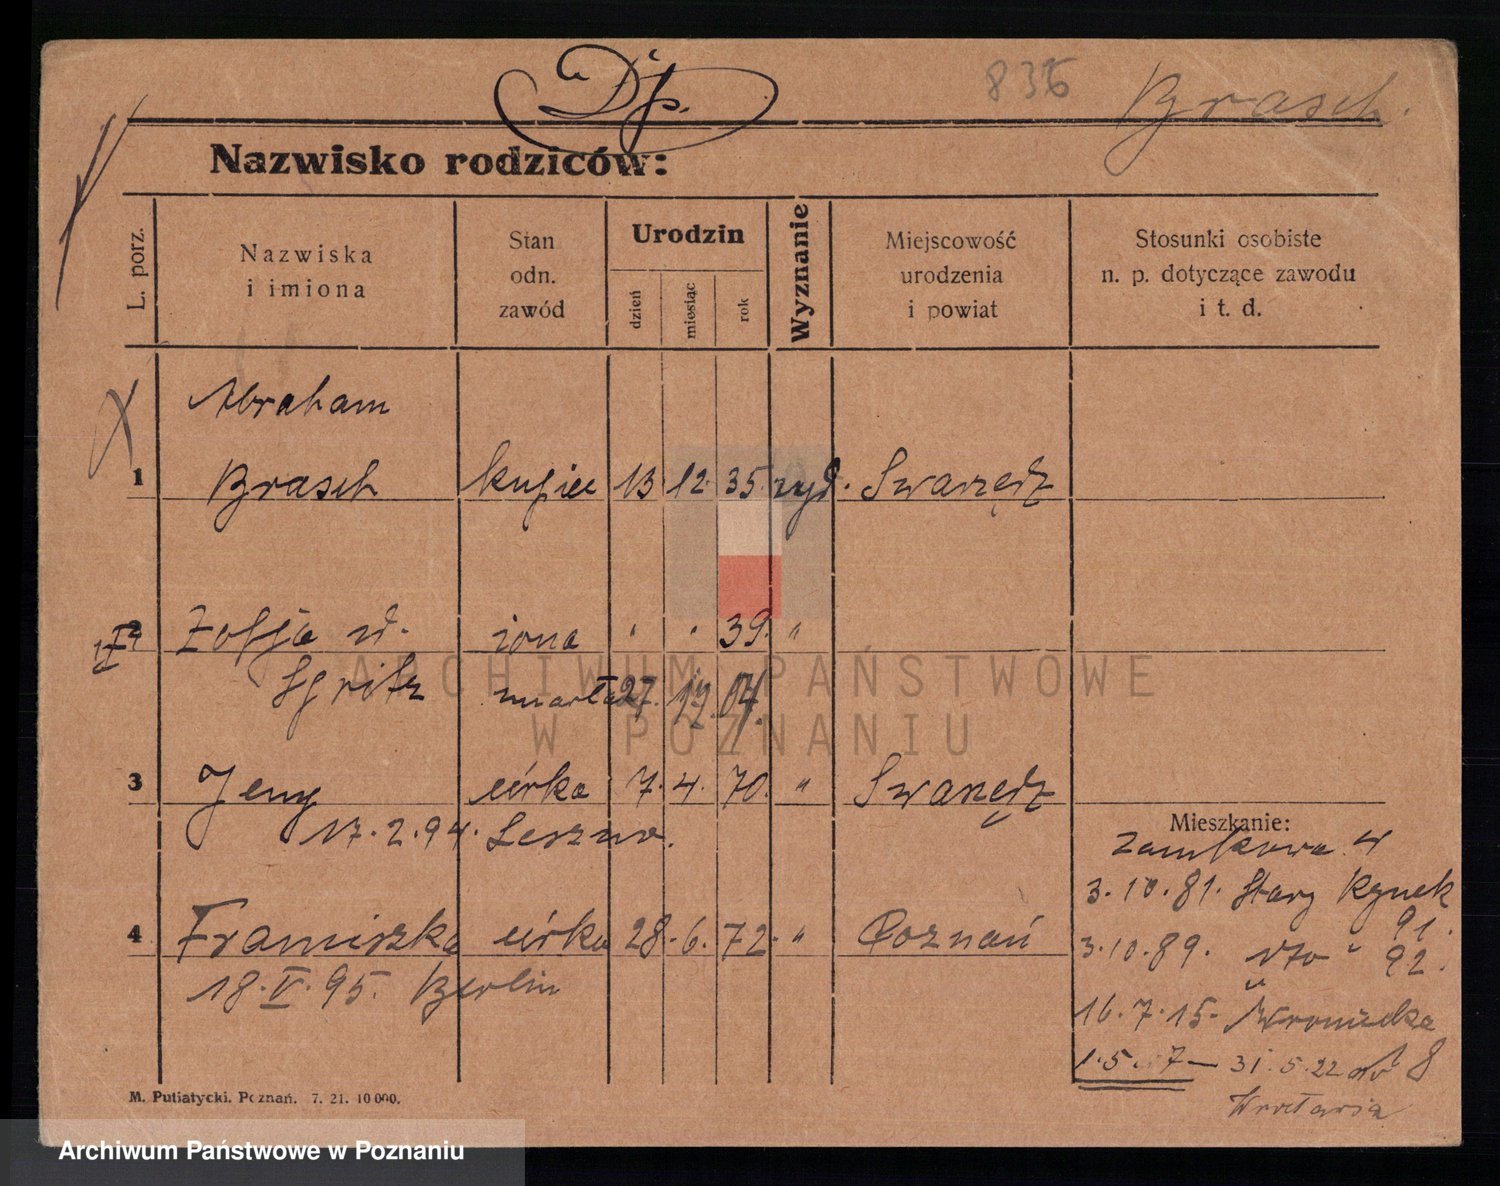 Dp.
835
Brasch.
Nazwisko rodziców:
L. porz.
Nazwiska
i imiona
Stan
odn.
zawód
Urodzin
dzień
miesiąc
rok
Wyznanie
Miejscowość
urodzenia
i powiat
Stosunki osobiste
n. p. dotyczące zawodu
i t. d.
Abraham
1 Brasch kupiec 13 12. 35. żyd. Swarzędz
2 Zofja ur. żona " " 39. "
zmarła 27. 12. 04.
3 Jeny córka 7. 4. 70. " Swarzędz
17. 2. 94. Leszno.
4 Franciszka córka 28. 6. 72. " Poznań
18. V. 95. Berlin
Mieszkanie:
Zamkowa 4
3. 10. 81. Stary Rynek
91.
3. 10. 89. " 92.
16. 7. 15. Wroniecka
31. 5. 22 do 8
Wrocławia
M. Putiatycki. Poznań. 7. 21. 10 000.
ARCHIWUM PAŃSTWOWE
W POZNANIU
Archiwum Państwowe w Poznaniu